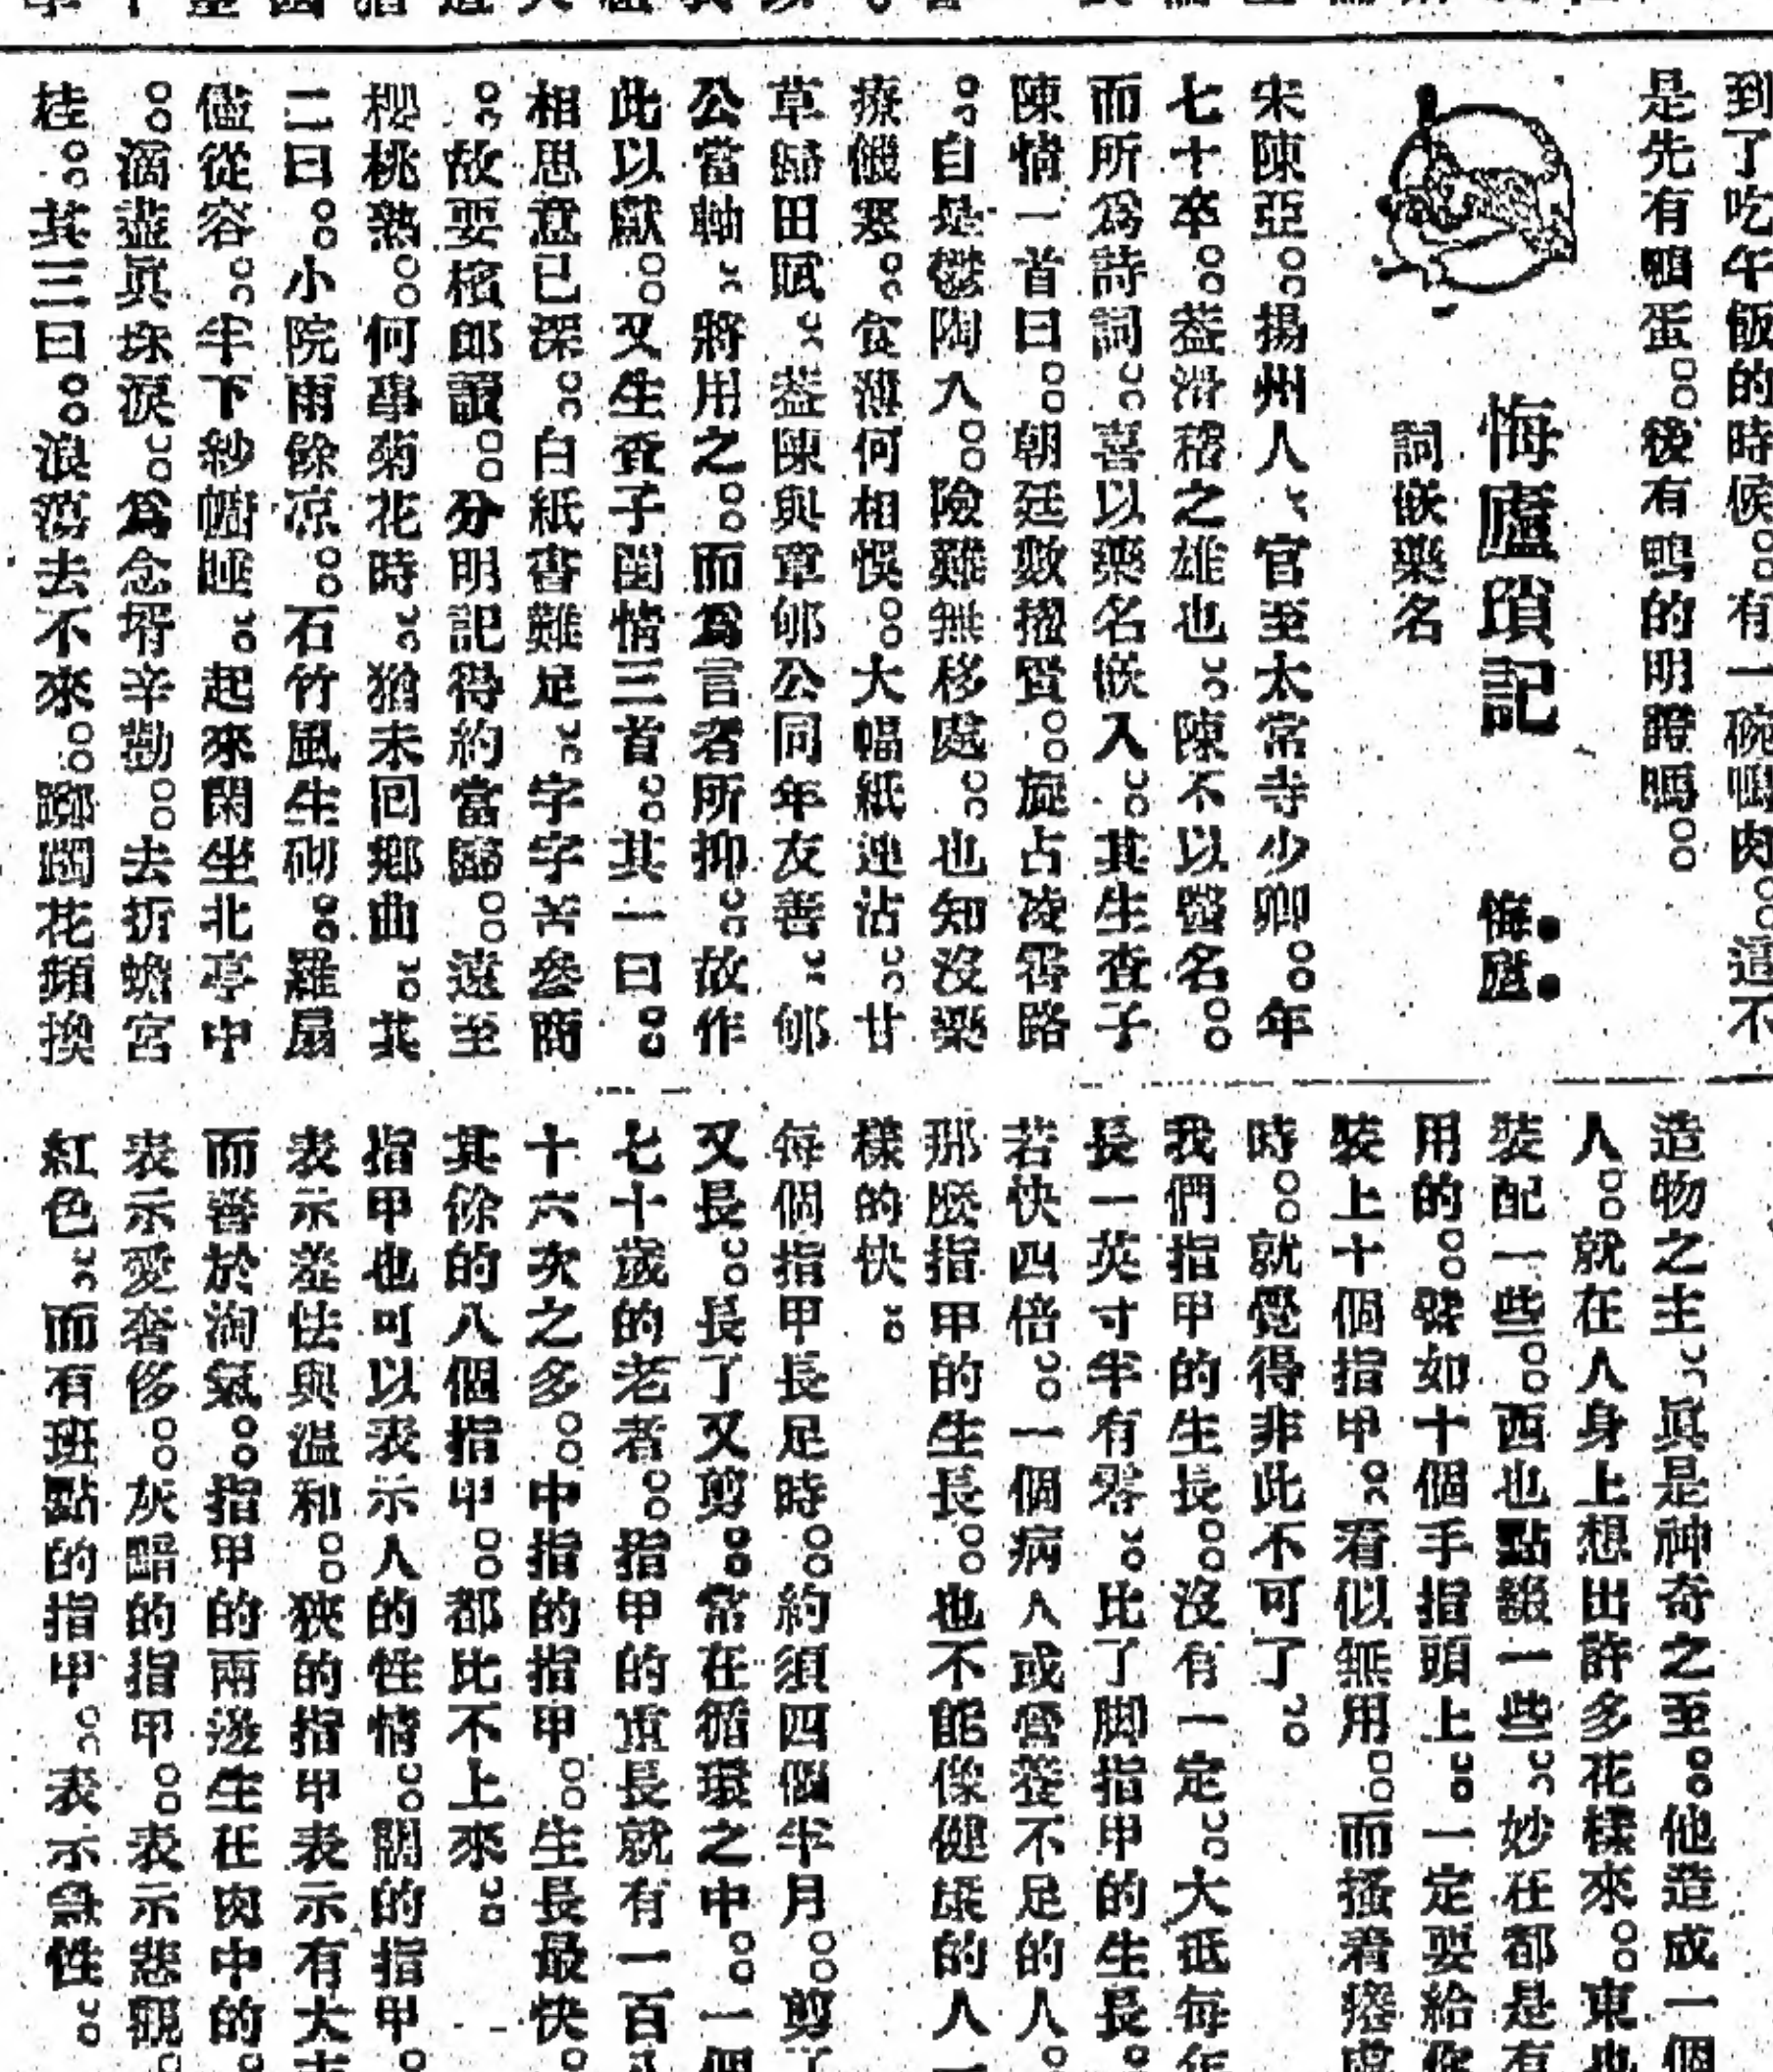 到了吃午飯的時候。。有一碗鴨肉。。這不
是先有鴨蛋。。後有鴨的明證嗎。。
悔廬瑣記
悔廬
詞嵌藥名
宋陳亞。。揚州人、官至太常寺少卿。。年
七十卒。。蓋滑稽之雄也。。陳不以醫名。。
而所爲詩詞。。喜以藥名嵌入。。其生查子
陳情一首曰。。朝廷數擢賢。。旋占凌霄路
。。自是鬱陶人。。險難無移處。。也知沒藥
療饑寒。。食薄何相悞。。大幅紙連沾。。甘
草歸田賦。。蓋陳與章郇公同年友善。。郇
公當軸。。將用之。。而爲言者所抑。。故作
此以獻。。又生查子閨情三首。。其一曰。。
相思意已深。。白紙書難足。。字字苦參商
。。故要檳郎讀。。分明記得約當歸。。遠至
櫻桃熟。。何事菊花時。。猶未回鄉曲。。其
二曰。。小院雨餘凉。。石竹風生砌。。羅扇
儘從容。。半下紗幮睡。。起來閑坐北亭中
。。滴盡眞珠淚。。爲念壻辛勤。。去折蟾宮
桂。。其三曰。。浪蕩去不來。。躑躅花頻換
造物之主。。眞是神奇之至。。他造成一個
人。。就在人身上想出許多花樣來。。東也
裝配一些。。西也點綴一些。。妙在都是有
用的。。譬如十個手指頭上。。一定要給你
裝上十個指甲。。看似無用。。而搔着癢處
時。。就覺得非此不可了。。
我們指甲的生長。。沒有一定。。大抵每年
長一英寸半有零。。比了脚指甲的生長。
若快四倍。。一個病人或營養不足的人。
那麼指甲的生長。。也不能像健康的人一
樣的快。。
每個指甲長足時。。約須四個半月。。剪了
又長。。長了又剪。。常在循環之中。。一個
七十歲的老者。。指甲的重長就有一百八
十六次之多。。中指的指甲。。生長最快。
其餘的八個指甲。。都比不上來。。
指甲也可以表示人的性情。。闊的指甲。
表示羞怯與温和。。狹的指甲表示有大志
而善於淘氣。。指甲的兩邊生在肉中的。
表示愛奢侈。。灰黯的指甲。。表示悲觀。
紅色。。而有班點的指甲。。表示急性。。